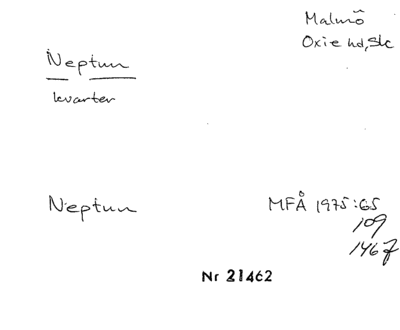 Malmö
Oxie hd, Sk
Neptun
kvarter
Neptun
MFÅ 1975:65
109
146 f
Nr 21462